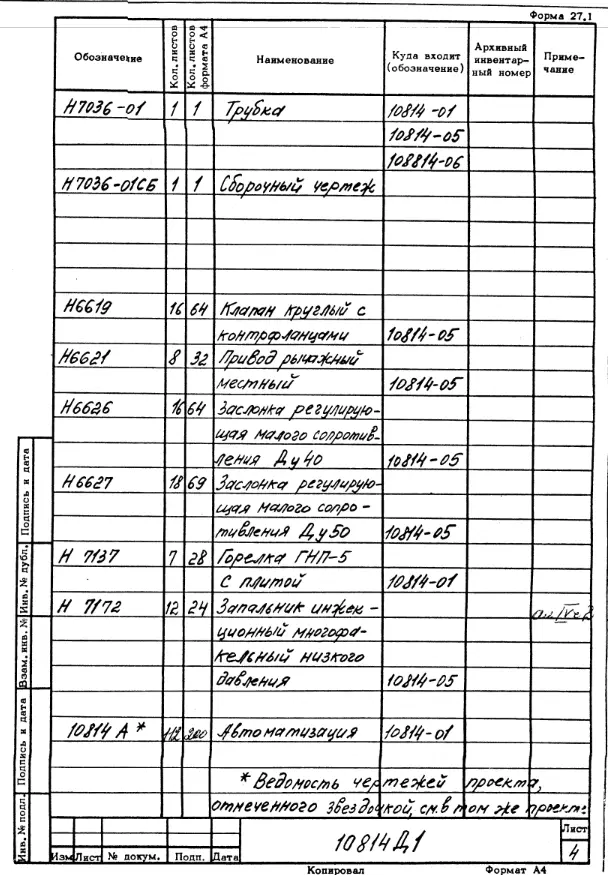 Форма 27.1
Обозначение Кол. листов Кол. листов формата А4 Наименование Куда входит (обозначение) Архивный инвентарный номер Примечание
Н7036-01 1 1 Трубка 10814-01
10814-05
108814-06
Н7036-01СБ 1 1 Сборочный чертеж
Н6619 16 64 Клапан круглый с
контрфланцами 10814-05
Н6621 8 32 Привод рычажный
местный 10814-05
Н6626 16 64 Заслонка регулирую-
щая малого сопротив-
ления Ду40 10814-05
Н6627 18 69 Заслонка регулирую-
щая малого сопро-
тивления Ду50 10814-05
Н 7137 7 28 Горелка ГНП-5
с плитой 10814-01
Н 7172 12 24 Запальник инжек-
ционный многофа-
кельный низкого
давления 10814-05
10814 А * Автоматизация 10814-01
* Ведомость чертежей проекта,
отмеченного звездочкой, см. в том же проекте
10814Д1
Лист
4
Изм Лист № докум. Подп. Дата
Инв. № подл. Подпись и дата Взам. инв. № Инв. № дубл. Подпись и дата
Копировал Формат А4